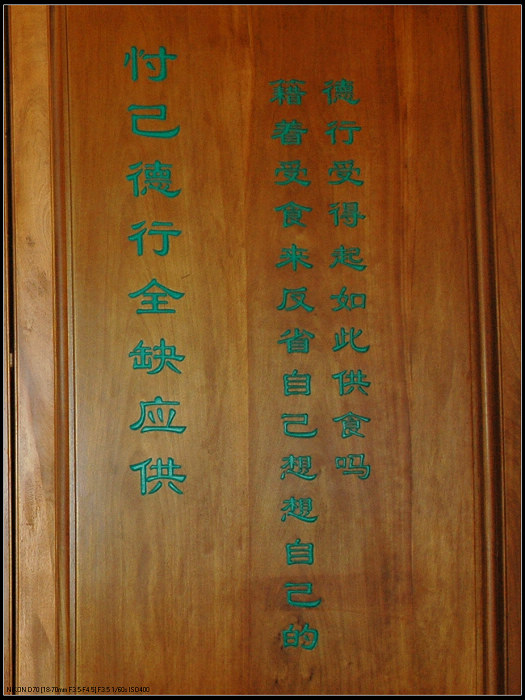 忖己德行全缺应供
籍着受食来反省自己想想自己的
德行受得起如此供食吗
NIKON D70 [18-70mm F3.5-F4.5] F3.5 1/60s ISO400